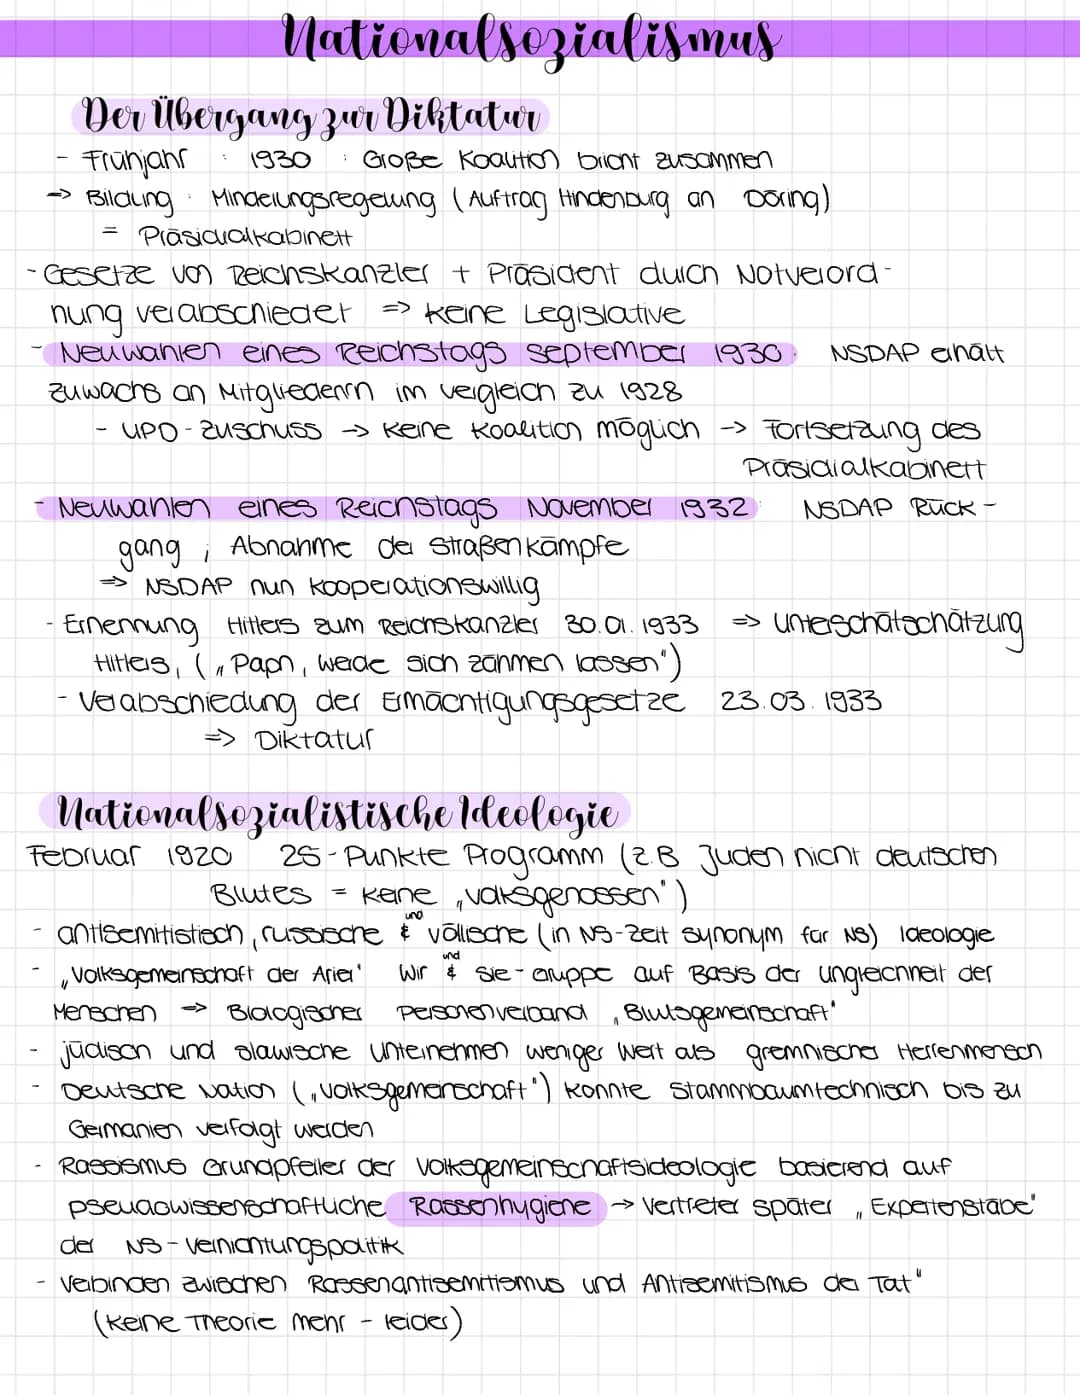 Nationalsozialismus
Der Übergang zur Diktatur
- Frühjahr : 1930 : Große Koalition bricht zusammen
=> Bildung : Minderungsregelung (Auftrag Hindenburg an Döring)
= Präsidialkabinett
- Gesetze von Reichskanzler + Präsident durch Notverord-
nung verabschiedet => keine Legislative
- Neuwahlen eines Reichstags September 1930: NSDAP erhält
zuwachs an Mitgliedern im vergleich zu 1928
- UPD-Zuschuss -> Keine Koalition möglich -> Fortsetzung des
Präsidialkabinett
- Neuwahlen eines Reichstags November 1932: NSDAP Rück-
gang ; Abnahme der Straßenkämpfe
=> NSDAP nun kooperationswillig
- Ernennung Hitlers zum Reichskanzler 30.01.1933 => Unterschätschätzung
Hitlers, („Papn, werde sich zähmen lassen")
- Verabschiedung der Ermächtigungsgesetze 23.03.1933
=> Diktatur
Nationalsozialistische Ideologie
Februar 1920 25-Punkte Programm (z.B Juden nicht deutschen
Blutes = keine „volksgenossen")
- antisemitistisch, russische & und völlische (in NS-Zeit synonym für NS) Ideologie
- „Volksgemeinschaft der Arier' Wir & und Sie-Gruppe auf Basis der ungleichheit der
Menschen => Biologischer Personenverband „Blutsgemeinschaft"
- jüdisch und slawische Unternehmen weniger Wert als gremnischer Herrenmensch
- Deutsche Nation („Volksgemeinschaft") konnte Stammbaumtechnisch bis zu
Germanien verfolgt werden
- Rassismus Grundpfeiler der Volksgemeinschaftsideologie basierend auf
pseudowissenschaftliche Rassenhygiene -> Vertreter später „Expertenstäbe"
der NS-Vernichtungspolitik
- Verbinden zwischen Rassenantisemitismus und Antisemitismus der Tat"
(keine Theorie mehr - leider)